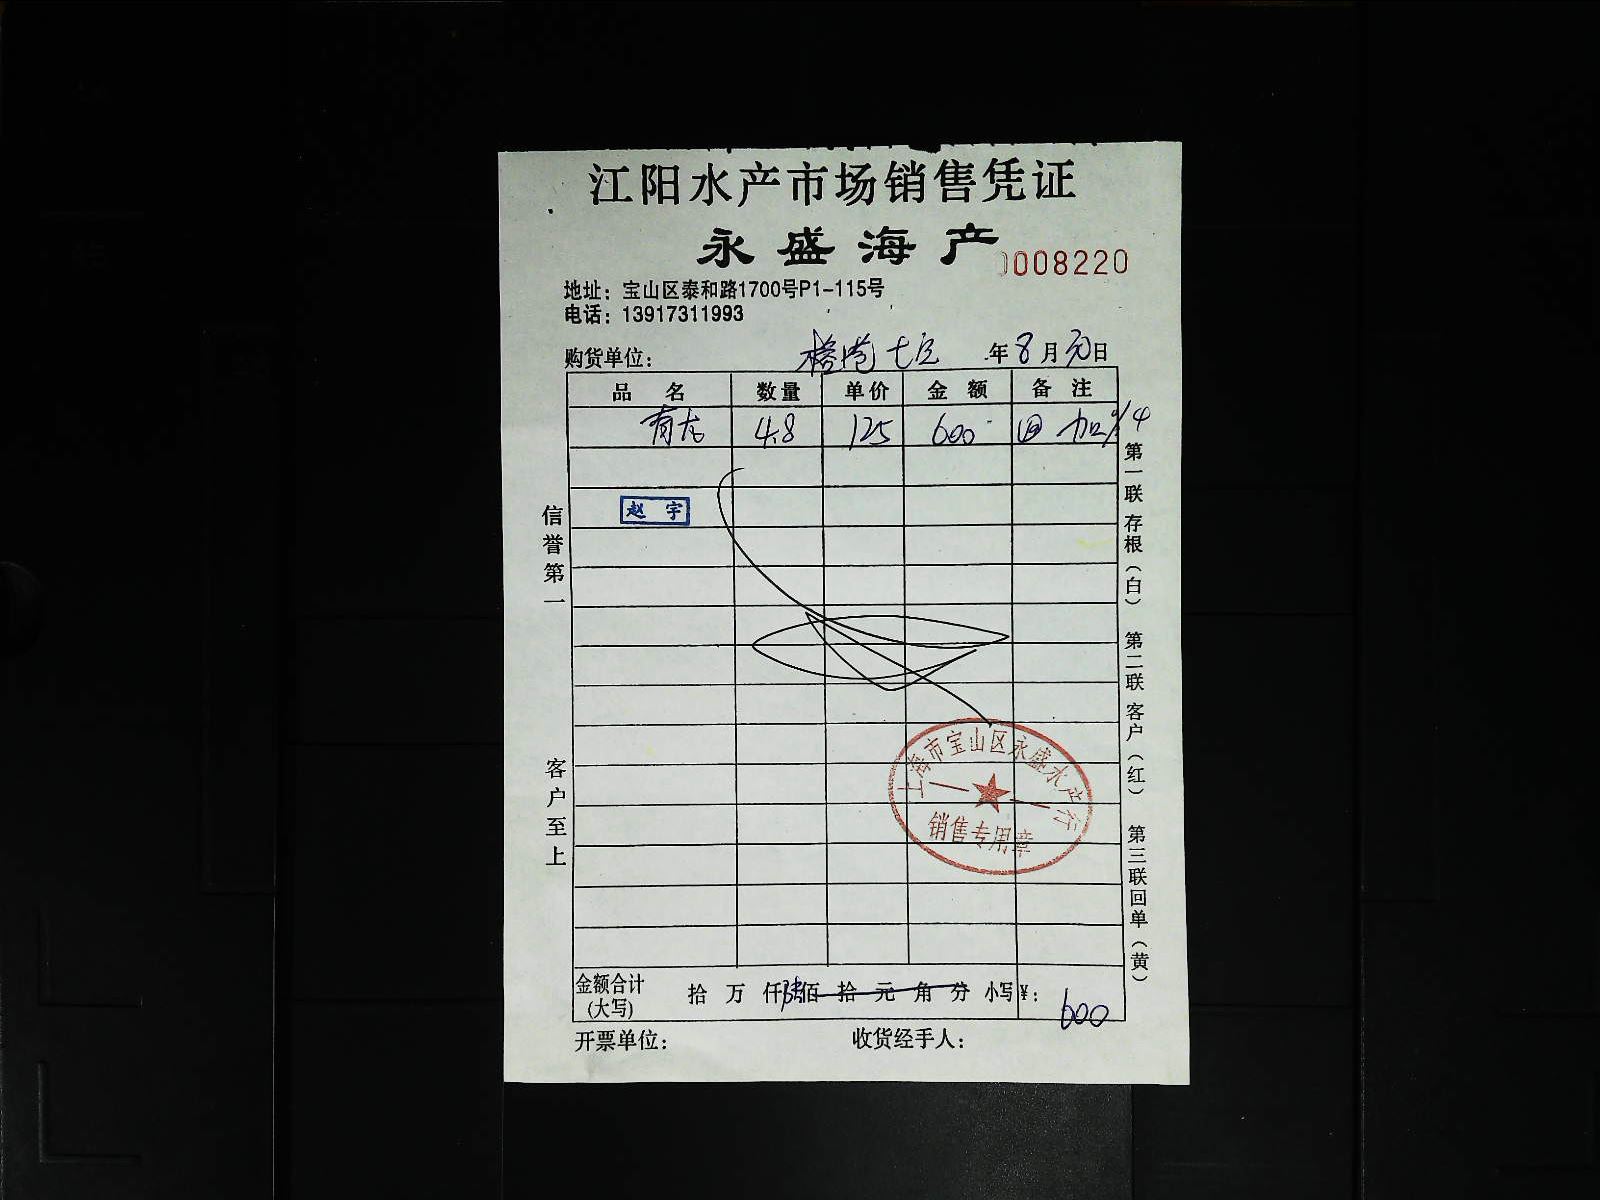 江阳水产市场销售凭证
永盛海产
0008220
地址：宝山区泰和路1700号P1-115号
电话：13917311993
购货单位： 榕港七宝 年8月30日
品 名 数量 单价 金 额 备 注
青龙 4.8 125 600
赵 宇
信誉第一
客户至上
第一联 存根（白） 第二联 客户（红） 第三联 回单（黄）
上海市宝山区永盛水产行
销售专用章
金额合计(大写) 拾 万 仟 陆佰 拾 元 角 分 小写¥： 600
开票单位： 收货经手人：